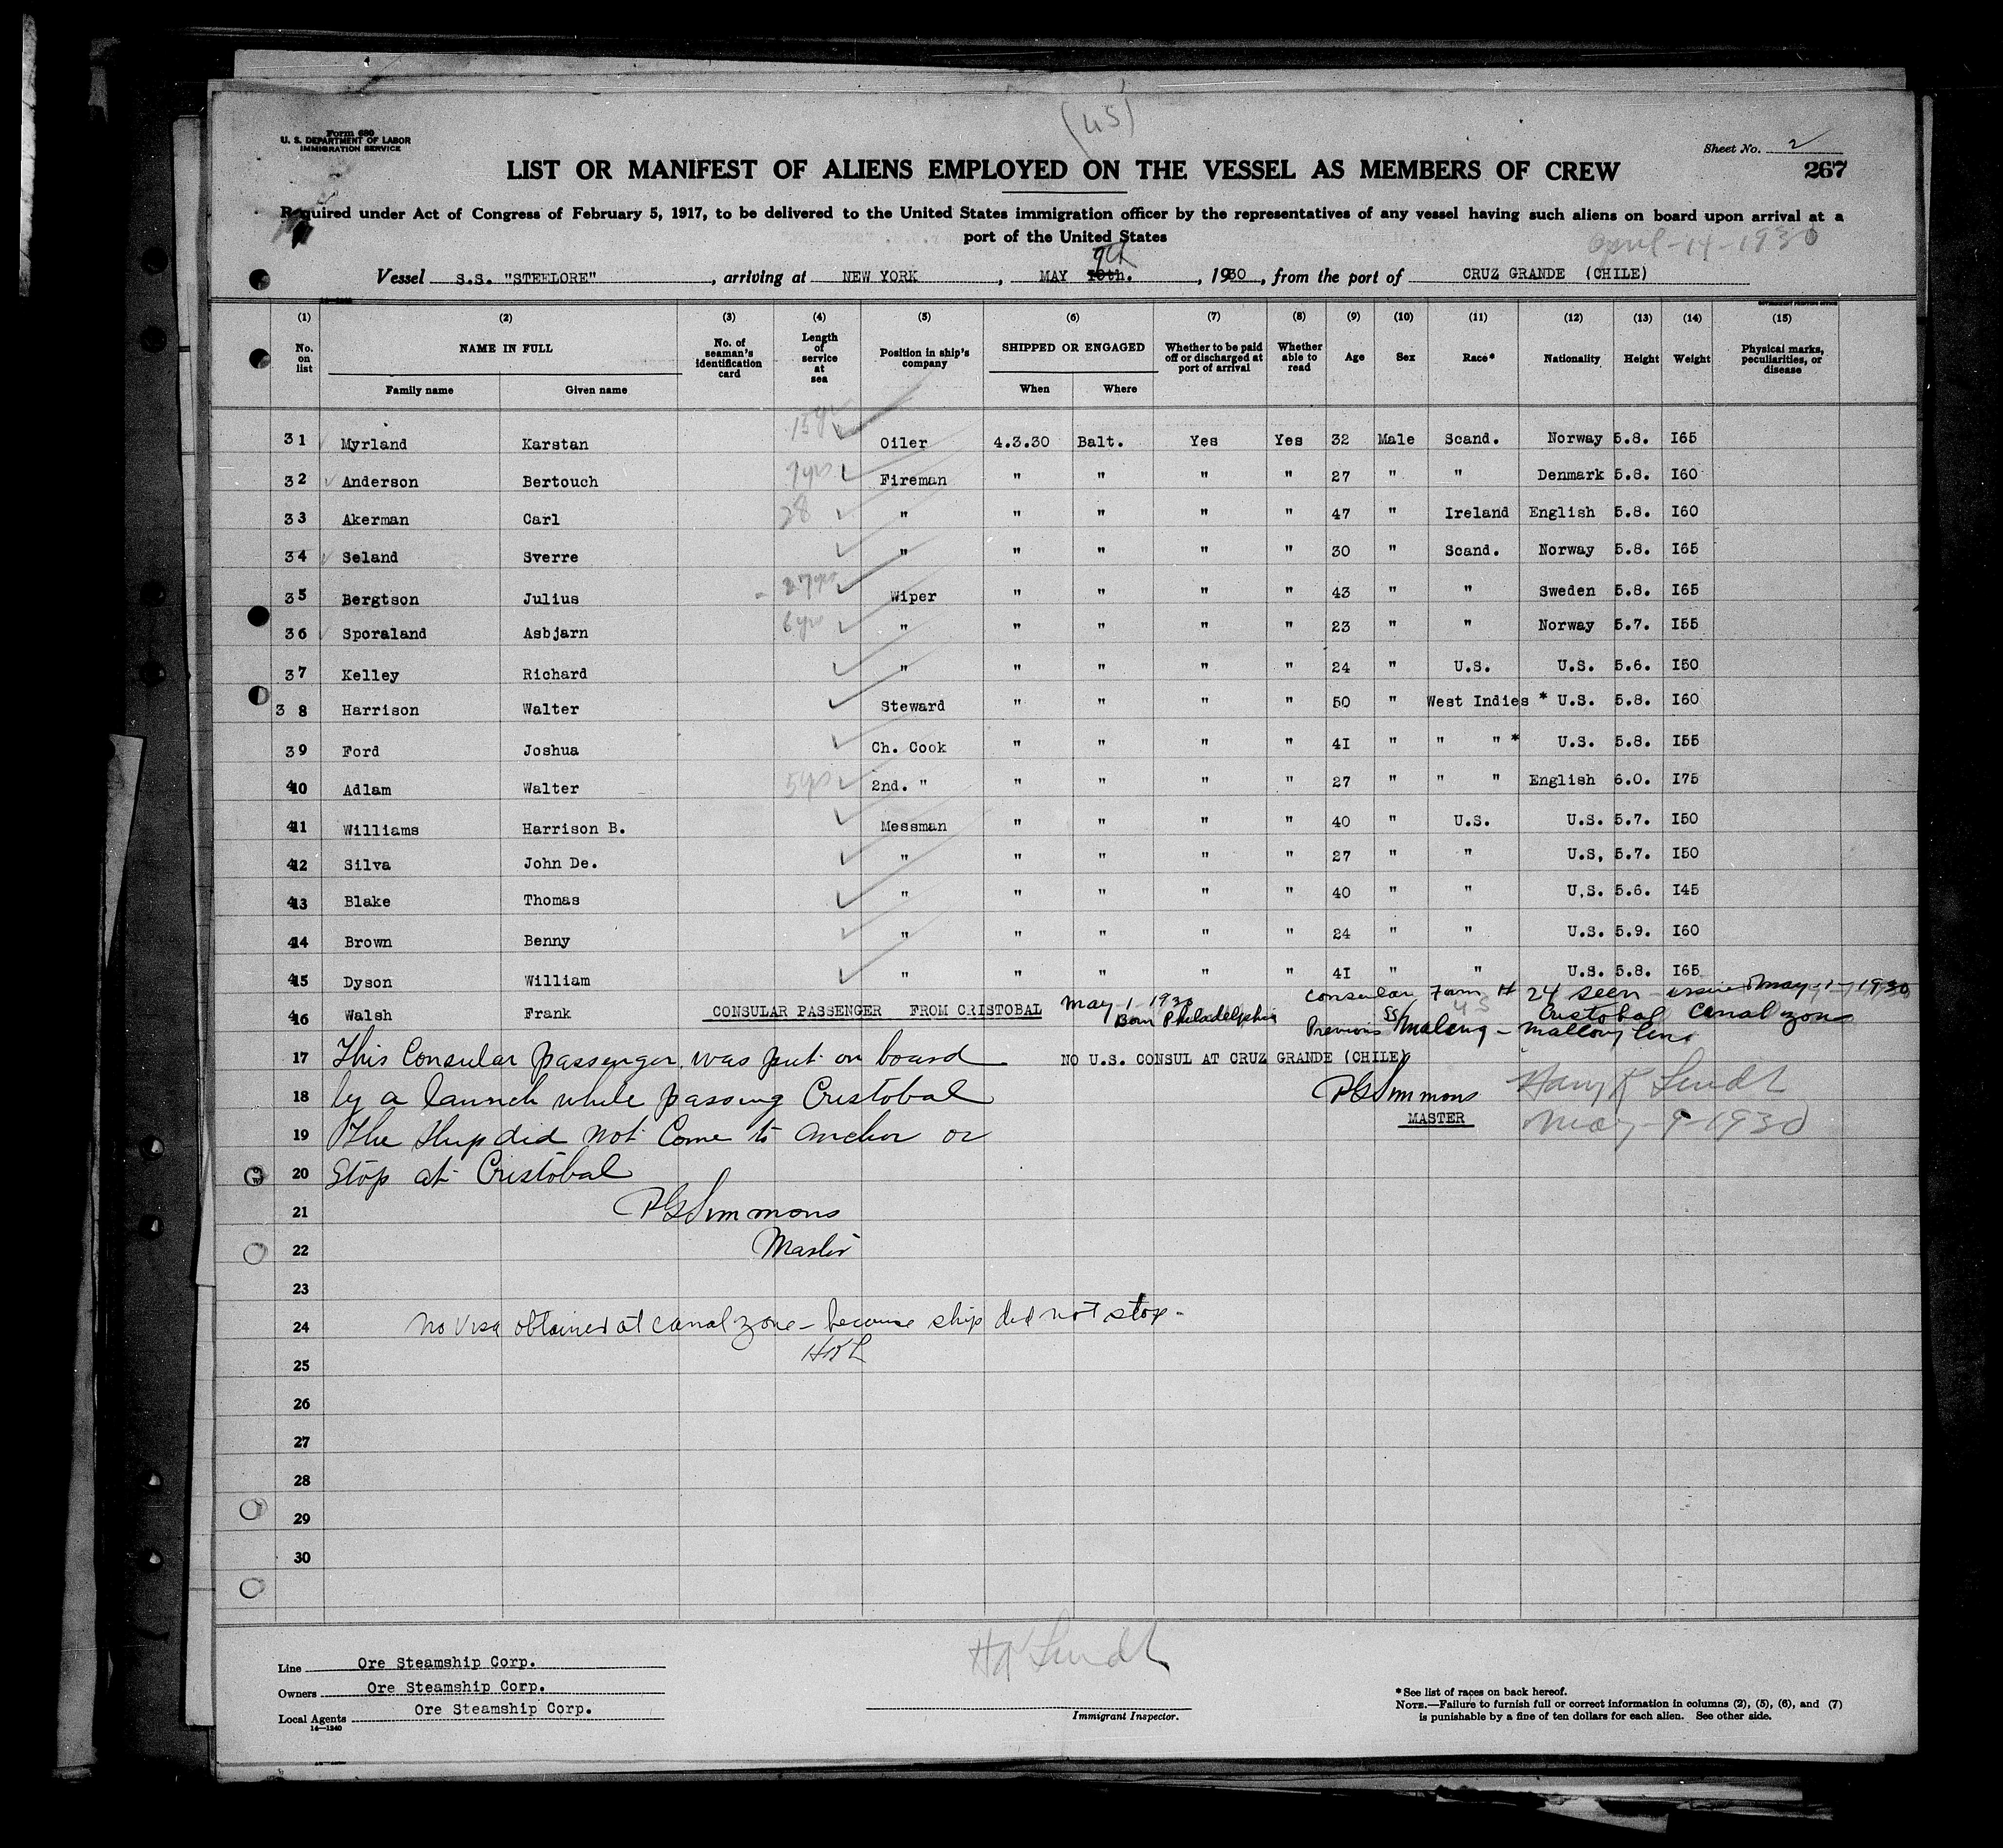 (US)
Form 680
U. S. DEPARTMENT OF LABOR
IMMIGRATION SERVICE
Sheet No. 2
LIST OR MANIFEST OF ALIENS EMPLOYED ON THE VESSEL AS MEMBERS OF CREW
267
Required under Act of Congress of February 5, 1917, to be delivered to the United States immigration officer by the representatives of any vessel having such aliens on board upon arrival at a
port of the United States
April-14-1930
9th
Vessel S.S. "STEELORE", arriving at NEW YORK, MAY 10th., 1930, from the port of CRUZ GRANDE (CHILE)
(1) (2) (3) (4) (5) (6) (7) (8) (9) (10) (11) (12) (13) (14) (15)
No. on list NAME IN FULL Family name Given name No. of seaman's identification card Length of service at sea Position in ship's company SHIPPED OR ENGAGED When Where Whether to be paid off or discharged at port of arrival Whether able to read Age Sex Race* Nationality Height Weight Physical marks, peculiarities, or disease
31 Myrland Karstan 15 yrs Oiler 4.3.30 Balt. Yes Yes 32 Male Scand. Norway 5.8. I65
32 Anderson Bertouch 7 yrs Fireman " " " " 27 " " Denmark 5.8. I60
33 Akerman Carl 28 " " " " " 47 " Ireland English 5.8. I60
34 Seland Sverre " " " " " 30 " Scand. Norway 5.8. I65
35 Bergtson Julius 27 yrs Wiper " " " " 43 " " Sweden 5.8. I65
36 Sporaland Asbjarn 6 yrs " " " " " 23 " " Norway 5.7. I55
37 Kelley Richard " " " " " 24 " U.S. U.S. 5.6. I50
38 Harrison Walter Steward " " " " 50 " West Indies * U.S. 5.8. I60
39 Ford Joshua Ch. Cook " " " " 4I " " " * U.S. 5.8. I55
40 Adlam Walter 5 yrs 2nd. " " " " " 27 " " " English 6.0. I75
41 Williams Harrison B. Messman " " " " 40 " U.S. U.S. 5.7. I50
42 Silva John De. " " " " " 27 " " U.S, 5.7. I50
43 Blake Thomas " " " " " 40 " " U.S. 5.6. I45
44 Brown Benny " " " " " 24 " " U.S. 5.9. I60
45 Dyson William " " " " " 4I " " U.S. 5.8. I65
46 Walsh Frank CONSULAR PASSENGER FROM CRISTOBAL May 1 1930 Born Philadelphia
Consular Form # 24 seen - issued May-1-1930
US Cristobal Canal zone
Previous SS Maleny - Mallory Line
17 This Consular passenger was put on board NO U.S. CONSUL AT CRUZ GRANDE (CHILE)
18 by a launch while passing Cristobal PGSimmons Harry K Lindt
19 The Ship did not Come to anchor or MASTER May-9-1930
20 Stop at Cristobal
21 PGSimmons
22 Master
23
24 No visa obtained at canal zone - because ship did not stop -
25 HKL
26
27
28
29
30
HK Lindt
Line Ore Steamship Corp.
Owners Ore Steamship Corp.
Local Agents Ore Steamship Corp.
14—1240
Immigrant Inspector.
* See list of races on back hereof.
NOTE.—Failure to furnish full or correct information in columns (2), (5), (6), and (7)
is punishable by a fine of ten dollars for each alien. See other side.